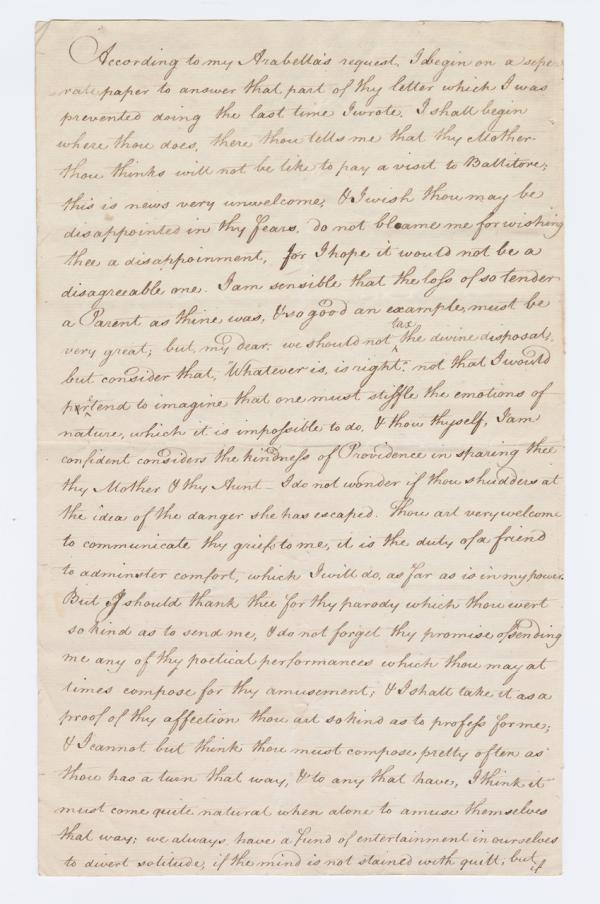 According to my Arabella's request, I begin on a sepe
rate paper to answer that part of thy letter which I was
prevented doing the last time I wrote. I shall begin
where thou does, there thou tells me that thy Mother
thou thinks will not be like to pay a visit to Ballitore,
this is news very unwelcome, & I wish thou may be
disappointed in thy fears, do not blame me for wishing
thee a disappoinment, for I hope it would not be a
disagreeable one. I am sensible that the loss of so tender
a Parent as thine was, & so good an example, must be
very great; but, my dear, we should not tax the divine disposal,
but consider that, "Whatever is, is right." not that I would
pretend to imagine that one must stiffle the emotions of
nature, which it is impossible to do, & thou thyself, I am
confident considers the kindness of Providence in sparing thee
thy Mother & thy Aunt – I do not wonder if thou shudders at
the idea of the danger she has escaped. Thou art very welcome
to communicate thy griefs to me, it is the duty of a friend
to adminster comfort, which I will do, as far as is in my power.
But I should thank thee for thy parody which thou wert
so kind as to send me, & do not forget thy promise of sending
me any of thy poetical performances which thou may at
times compose for thy amusement; & I shall take it as a
proof of thy affection thou art so kind as to profess for me;
& I cannot but think thou must compose pretty often as
thou has a turn that way, & to any that have, I think it
must come quite natural when alone to amuse themselves
that way; we always have a fund of entertainment in ourselves
to divert solitude, if the mind is not stained with guilt; but if